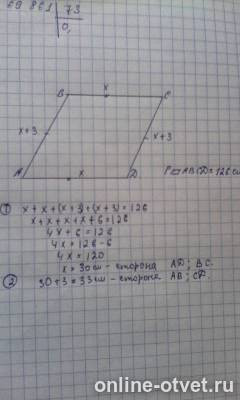 69 861 | 73
0,
B x C
x+3 x+3
A x D
P▱ABCD=126см
① x+x+(x+3)+(x+3)=126
x+x+x+x+6=126
4x+6=126
4x=126-6
4x=120
x=30см-сторона AD; BC.
② 30+3=33см-сторона AB; CD.
online-otvet.ru